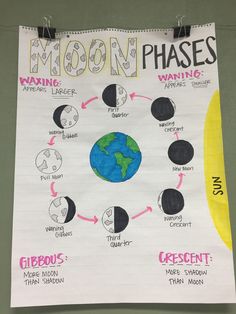 MOON PHASES
WAXING:
APPEARS LARGER
WANING:
APPEARS SMALLER
First
Quarter
Waxing
Gibbous
Crescent
Full Moon
New Moon
Waning
Gibbous
Waning
Crescent
Third
Quarter
SUN
GIBBOUS:
MORE MOON
THAN SHADOW
CRESCENT:
MORE SHADOW
THAN MOON